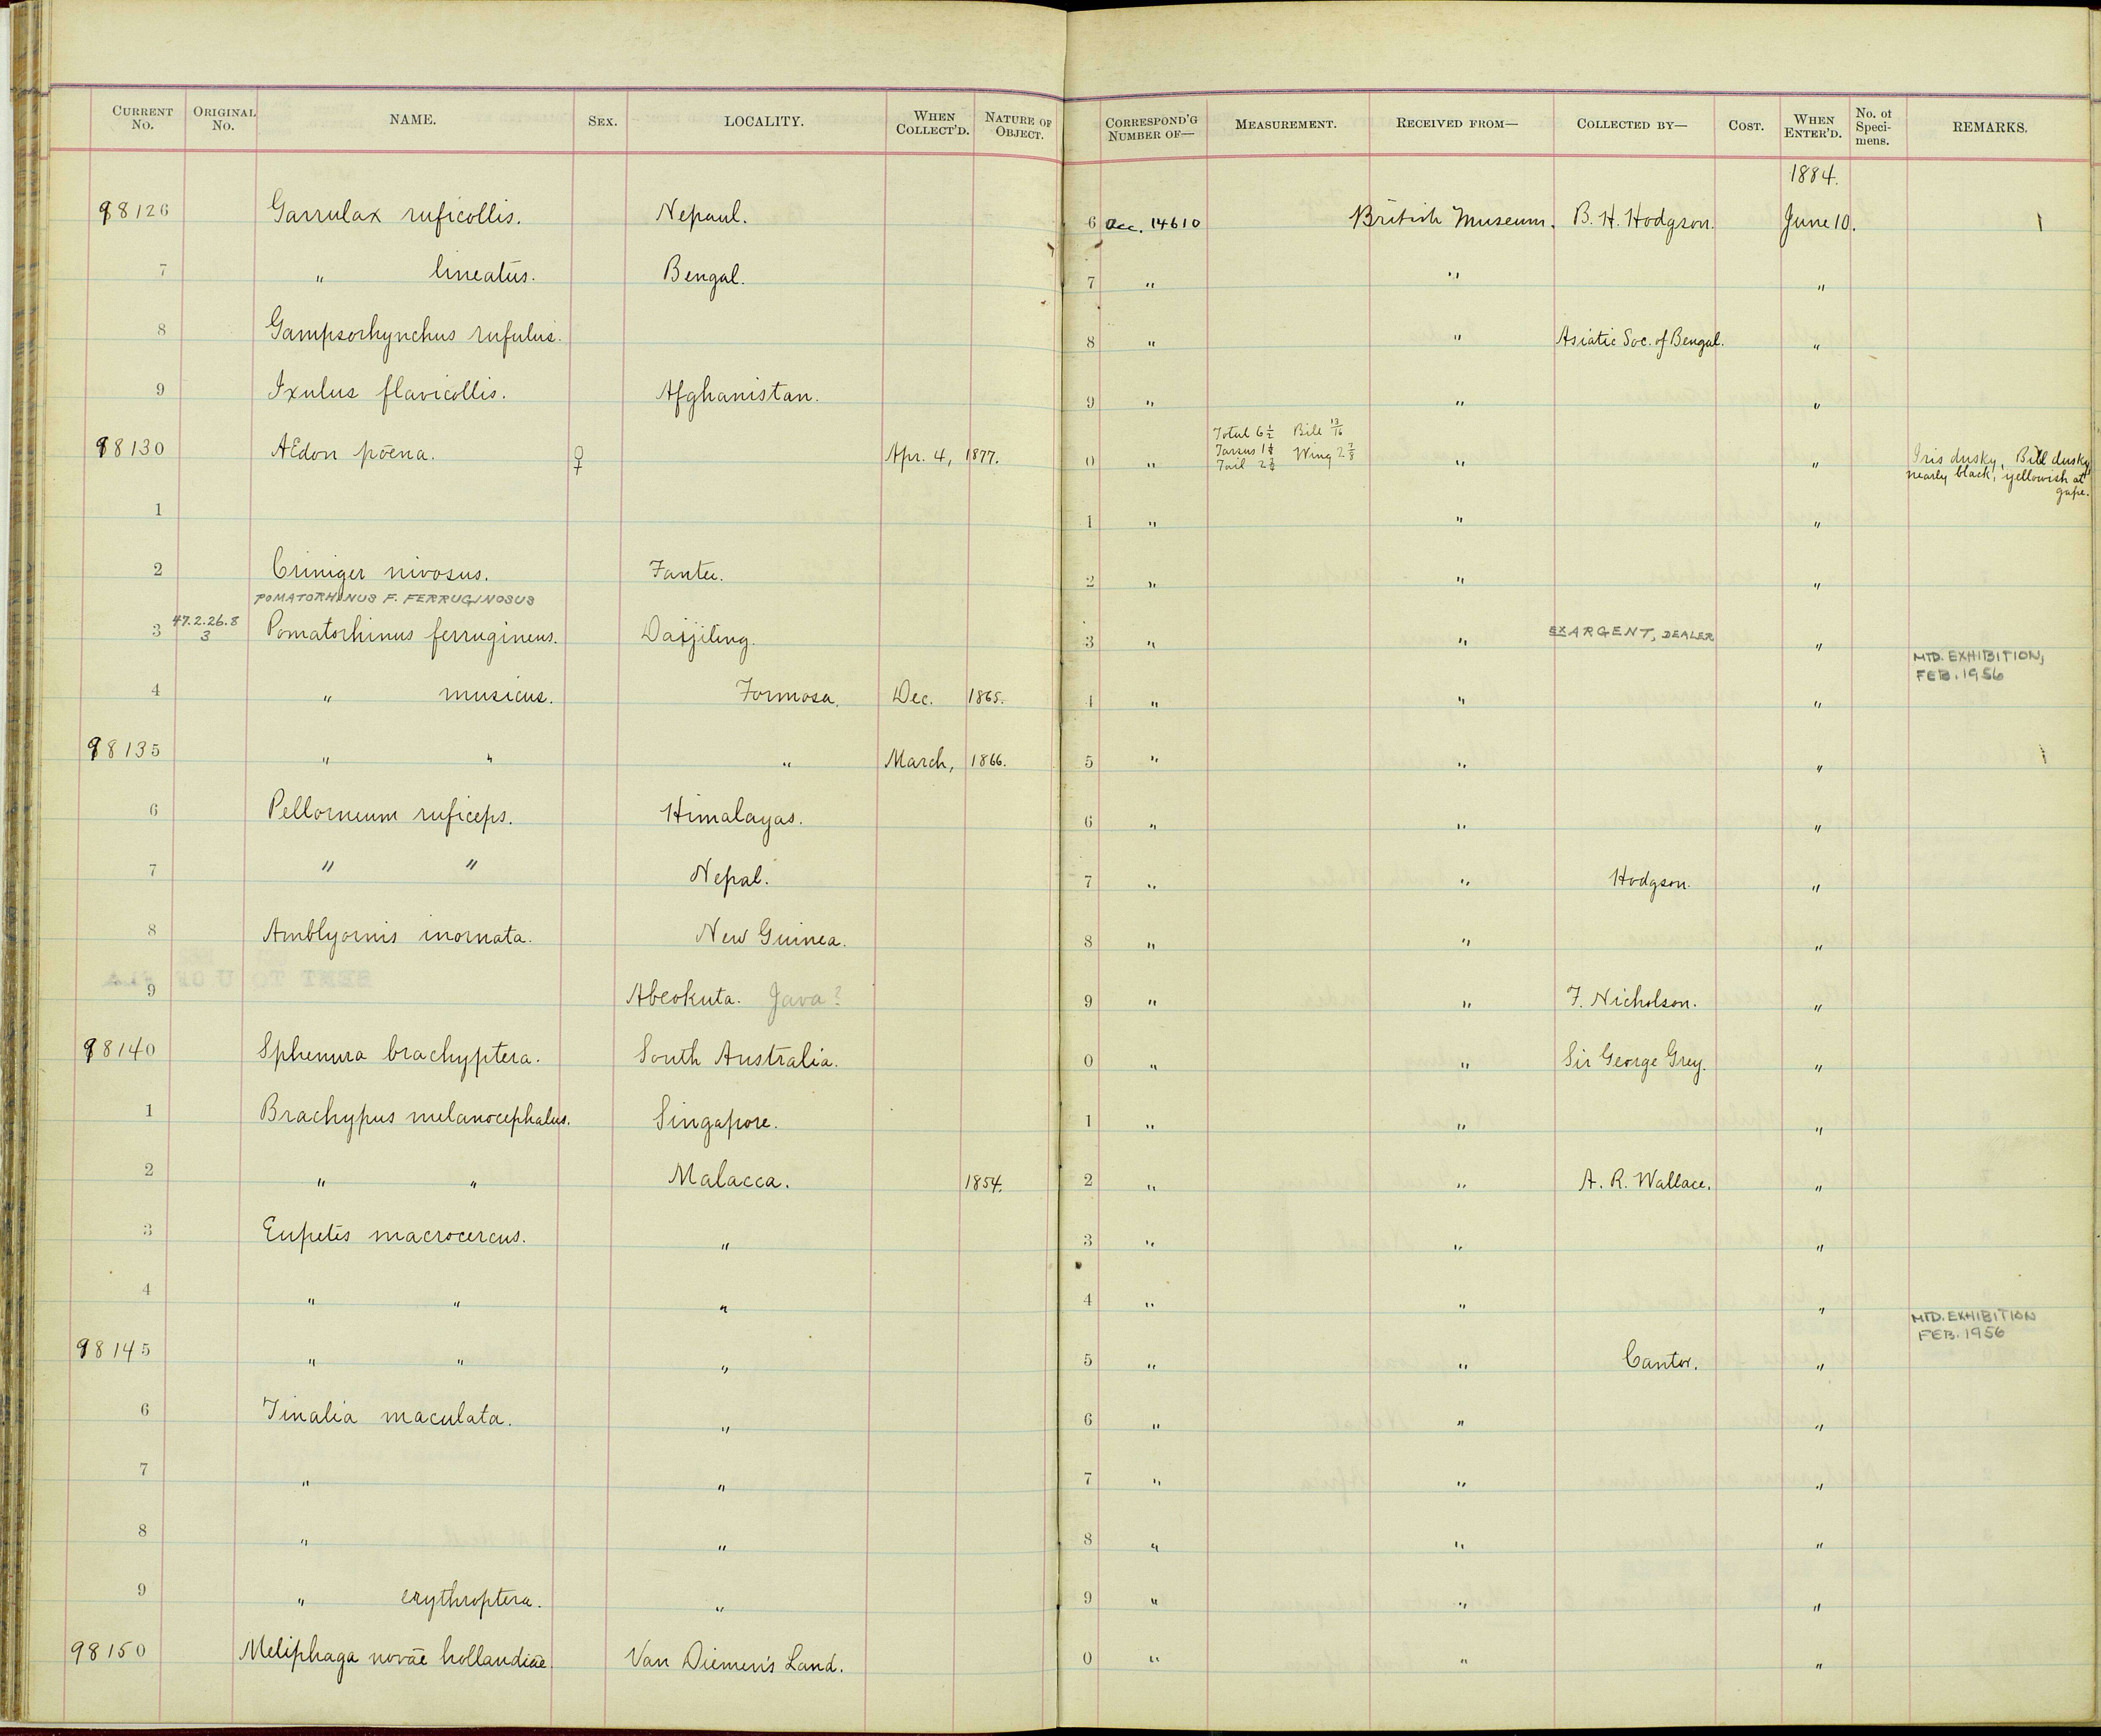 CURRENT No. ORIGINAL No. NAME. SEX. LOCALITY. WHEN COLLECT'D. NATURE OF OBJECT. CORRESPOND'G NUMBER OF— MEASUREMENT. RECEIVED FROM— COLLECTED BY— COST. WHEN ENTER'D. No. of Speci-mens. REMARKS.
1884.
98126 Garrulax ruficollis. Nepaul. 6 Acc. 14610 British Museum. B. H. Hodgson. June 10.
7 " lineatus. Bengal. 7 " " "
8 Gampsorhynchus rufulus. 8 " " Asiatic Soc. of Bengal. "
9 Ixulus flavicollis. Afghanistan. 9 " " "
98130 AEdon pōena. ♀ Apr. 4, 1877. 0 " Total 6 1/2 Bill 13/16 Tarsus 1 1/8 Wing 2 7/8 Tail 2 3/4 " " Iris dusky, Bill dusky, nearly black, yellowish at gape.
1 1 " " "
2 Criniger nivosus. Fantee. 2 " " "
POMATORHINUS F. FERRUGINOSUS
3 47.2.26.8 3 Pomatorhinus ferrugineus. Darjiling. 3 " " EX ARGENT, DEALER "
MTD. EXHIBITION, FEB. 1956
4 " musicus. Formosa. Dec. 1865. 4 " " "
98135 " " " March, 1866. 5 " " "
6 Pellorneum ruficeps. Himalayas. 6 " " "
7 " " Nepal. 7 " " Hodgson. "
8 Amblyornis inornata. New Guinea. 8 " " "
9 Abeokuta. Java? 9 " " F. Nicholson. "
98140 Sphenura brachyptera. South Australia. 0 " " Sir George Grey. "
1 Brachypus melanocephalus. Singapore. 1 " " "
2 " " Malacca. 1854. 2 " " A. R. Wallace. "
3 Eupetes macrocercus. " 3 " " "
4 " " " 4 " " "
MTD. EXHIBITION FEB. 1956
98145 " " " 5 " " Cantor. "
6 Timalia maculata. " 6 " " "
7 " " 7 " " "
8 " " 8 " " "
9 " erythroptera. " 9 " " "
98150 Meliphaga novāe hollandiāe. Van Diemen's Land. 0 " " "